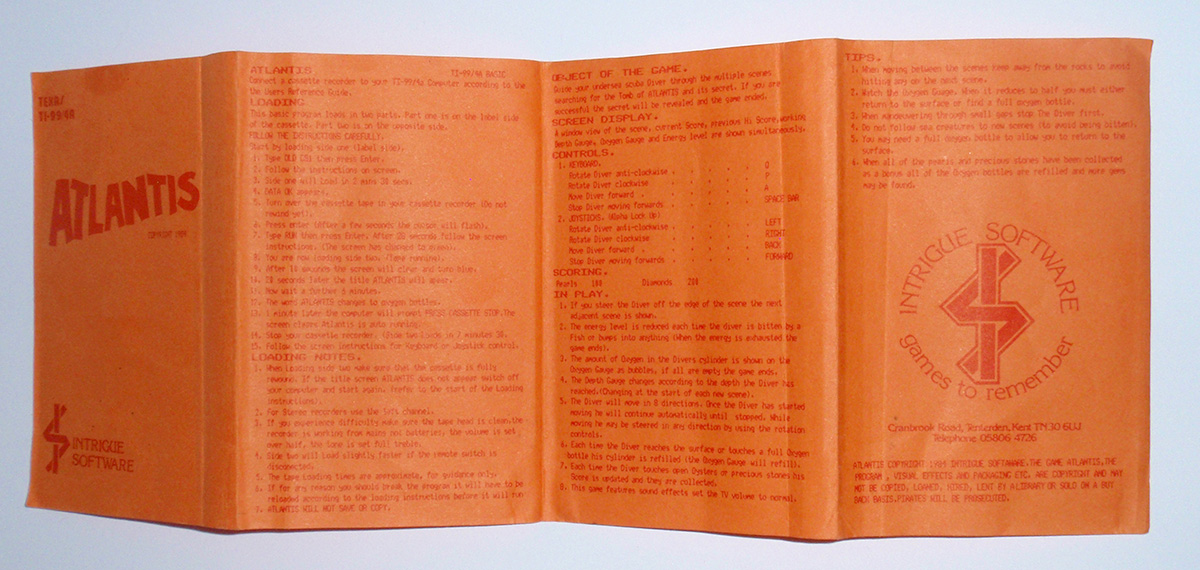 TEXAS
TI-99/4A
ATLANTIS
COPYRIGHT 1984
INTRIGUE
SOFTWARE
ATLANTIS TI-99/4A BASIC
Connect a cassette recorder to your TI-99/4a Computer according to the
the Users Reference Guide.
LOADING
This basic program loads in two parts. Part one is on the label side
of the cassette. Part two is on the opposite side.
FOLLOW THE INSTRUCTIONS CAREFULLY.
Start by loading side one (label side).
1. Type OLD CS1 then press Enter.
2. Follow the instructions on screen.
3. Side one will Load in 2 mins 30 secs.
4. DATA OK appears.
5. Turn over the cassette tape in your cassette recorder (Do not
rewind yet).
6. Press enter (After a few seconds the screen will flash).
7. Type RUN then press Enter. After 20 seconds follow the screen
instructions. (The screen has changed to green).
8. You are now loading side two. (Tape running).
9. After 10 seconds the screen will clear and turn blue.
10. 20 seconds later the title ATLANTIS will appear.
11. Now wait a further 6 minutes.
12. The word ATLANTIS changes to oxygen bottles.
13. 1 minute later the computer will prompt PRESS CASSETTE STOP. The
screen clears Atlantis is auto running.
14. Stop your cassette recorder. (Side two loads in 7 minutes 50.
15. Follow the screen instructions for Keyboard or Joystick control.
LOADING NOTES.
1. When Loading side two make sure that the cassette is fully
rewound. If the title screen ATLANTIS does not appear switch off
your computer and start again. (refer to the start of the Loading
instructions).
2. For Stereo recorders use the left channel.
3. If you experience difficulty make sure the tape head is clean.the
recorder is working from mains not batteries. the volume is set
over half, the tone is set full treble.
4. Side two will Load slightly faster if the remote switch is
disconnected.
5. The tape loading times are approximate, for guidance only.
6. If for any reason you should break the program it will have to be
reloaded according to the loading instructions before it will run
7. ATLANTIS WILL NOT SAVE OR COPY.
OBJECT OF THE GAME.
Guide your undersea scuba Diver through the multiple scenes
searching for the Tomb of ATLANTIS and its secret. If you are
successful the secret will be revealed and the game ended.
SCREEN DISPLAY.
A window view of the scene, current Score, previous Hi Score,working
Depth Gauge, Oxygen Gauge and Energy level are shown simultaneously.
CONTROLS.
1. KEYBOARD.
Rotate Diver anti-clockwise . . . . . . O
Rotate Diver clockwise . . . . . . P
Move Diver forward . . . . . . A
Stop Diver moving forwards . . . . . . SPACE BAR
2. JOYSTICKS. (Alpha Lock Up)
Rotate Diver anti-clockwise . . . . . . LEFT
Rotate Diver clockwise . . . . . . RIGHT
Move Diver forward . . . . . . BACK
Stop Diver moving forwards . . . . . . FORWARD
SCORING.
Pearls 100 Diamonds 200
IN PLAY.
1. If you steer the Diver off the edge of the scene the next
adjacent scene is shown.
2. The energy level is reduced each time the diver is bitten by a
Fish or bumps into anything (When the energy is exhausted the
game ends).
3. The amount of Oxygen in the Divers cylinder is shown on the
Oxygen Gauge as bubbles, if all are empty the game ends.
4. The Depth Gauge changes according to the depth the Diver has
reached.(Changing at the start of each new scene).
5. The Diver will move in 8 directions. Once the Diver has started
moving he will continue automatically until stopped. While
moving he may be steered in any direction by using the rotation
controls.
6. Each time the Diver reaches the surface or touches a full Oxygen
bottle his cylinder is refilled (the Oxygen Gauge will refill).
7. Each time the Diver touches open Oysters or precious stones his
Score is updated and they are collected.
8. This game features sound effects set the TV volume to normal.
TIPS.
1. When moving between the scenes keep away from the rocks to avoid
hitting any on the next scene.
2. Watch the Oxygen Gauge. When it reduces to half you must either
return to the surface or find a full oxygen bottle.
3. When manoeuvering through small gaps stop The Diver first.
4. Do not follow sea creatures to new scenes (to avoid being bitten).
5. You may need a full Oxygen bottle to allow you to return to the
surface.
6. When all of the pearls and precious stones have been collected
as a bonus all of the Oxygen bottles are refilled and more gems
may be found.
INTRIGUE SOFTWARE
games to remember
Cranbrook Road, Tenterden, Kent TN30 6UJ
Telephone 05806 4726
ATLANTIS COPYRIGHT 1984 INTRIGUE SOFTWARE.THE GAME ATLANTIS,THE
PROGRAM , VISUAL EFFECTS AND PACKAGING ETC. ARE COPYRIGHT AND MAY
NOT BE COPIED, LOANED, HIRED, LENT BY A LIBRARY OR SOLD ON A BUY
BACK BASIS.PIRATES WILL BE PROSECUTED.